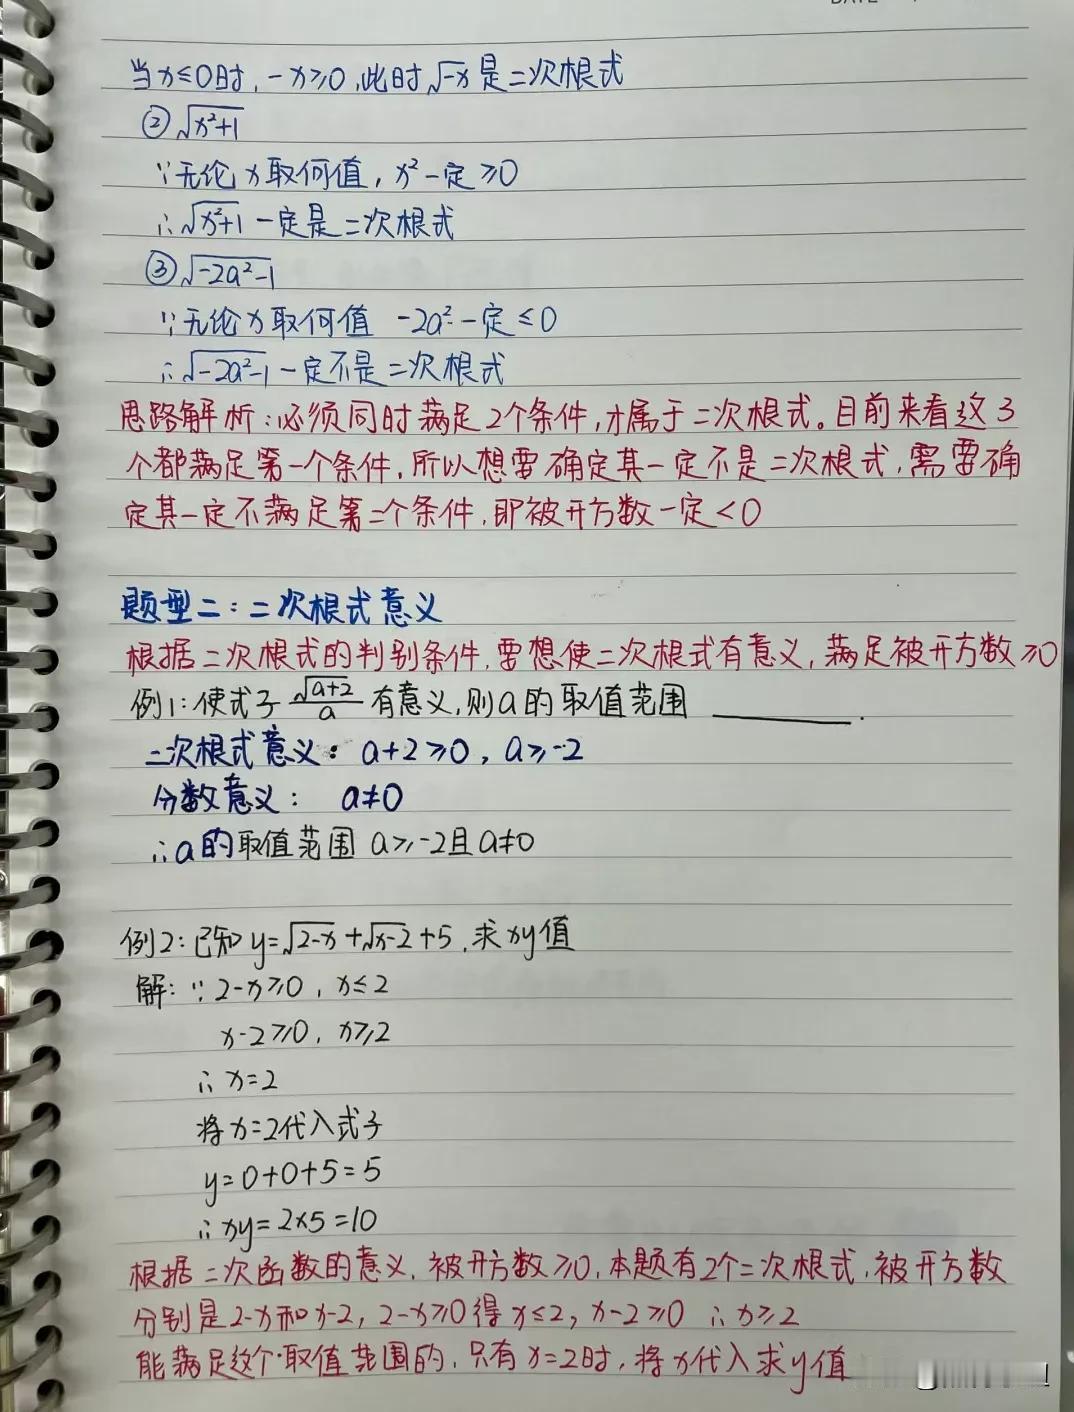 当x≤0时,-x≥0,此时√-x是二次根式
②√x²+1
∵无论x取何值,x²一定≥0
∴√x²+1一定是二次根式
③√-2a²-1
∵无论x取何值 -2a²一定≤0
∴√-2a²-1一定不是二次根式
思路解析:必须同时满足2个条件,才属于二次根式。目前来看这3
个都满足第一个条件,所以想要确定其一定不是二次根式,需要确
定其一定不满足第二个条件,即被开方数一定<0
题型二:二次根式意义
根据二次根式的判别条件,要想使二次根式有意义,满足被开方数≥0
例1:使式子√a+2/a有意义,则a的取值范围______.
二次根式意义: a+2≥0,a≥-2
分数意义: a≠0
∴a的取值范围 a≥-2且a≠0
例2:已知y=√2-x+√x-2+5,求xy值
解:∵2-x≥0,x≤2
x-2≥0,x≥2
∴x=2
将x=2代入式子
y=0+0+5=5
∴xy=2×5=10
根据二次函数的意义,被开方数≥0,本题有2个二次根式,被开方数
分别是2-x和x-2,2-x≥0得x≤2,x-2≥0 ∴x≥2
能满足这个取值范围的,只有x=2时,将x代入求y值